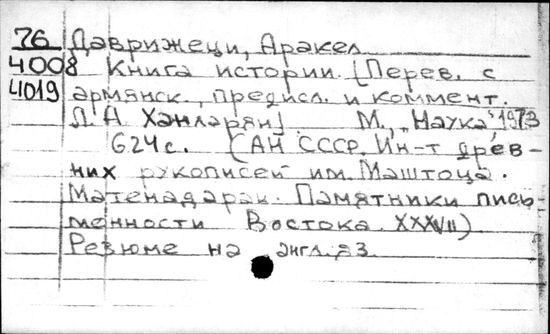 76 Даврижеци, Аракел
4008 Книга истории. [Перев. с
4019 армянск., предисл. и коммент.
Л.А. Ханларян]. М., "Наука", 1973
624с. (АН СССР. Ин-т древ-
них рукописей им. Маштоца.
Матенадаран. Памятники пись-
менности Востока. XXXVII)
Резюме на англ. яз.